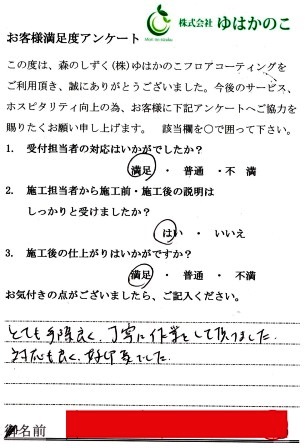 株式会社 ゆはかのこ
お客様満足度アンケート
この度は、森のしずく(株)ゆはかのこフロアコーティングを
ご利用頂き、誠にありがとうございました。今後のサービス、
ホスピタリティ向上の為、お客様に下記アンケートへご協力を
賜りたくお願い申し上げます。 該当欄を○で囲って下さい。
1. 受付担当者の対応はいかがでしたか?
満足 ・ 普通 ・ 不 満
2. 施工担当者から施工前・施工後の説明は
しっかりと受けましたか?
はい ・ いいえ
3. 施工後の仕上がりはいかがですか?
満足 ・ 普通 ・ 不満
お気付きの点がございましたら、ご記入ください。
とても手際良く、丁寧に作業をして頂けました。
対応も良く、好印象でした。
御名前